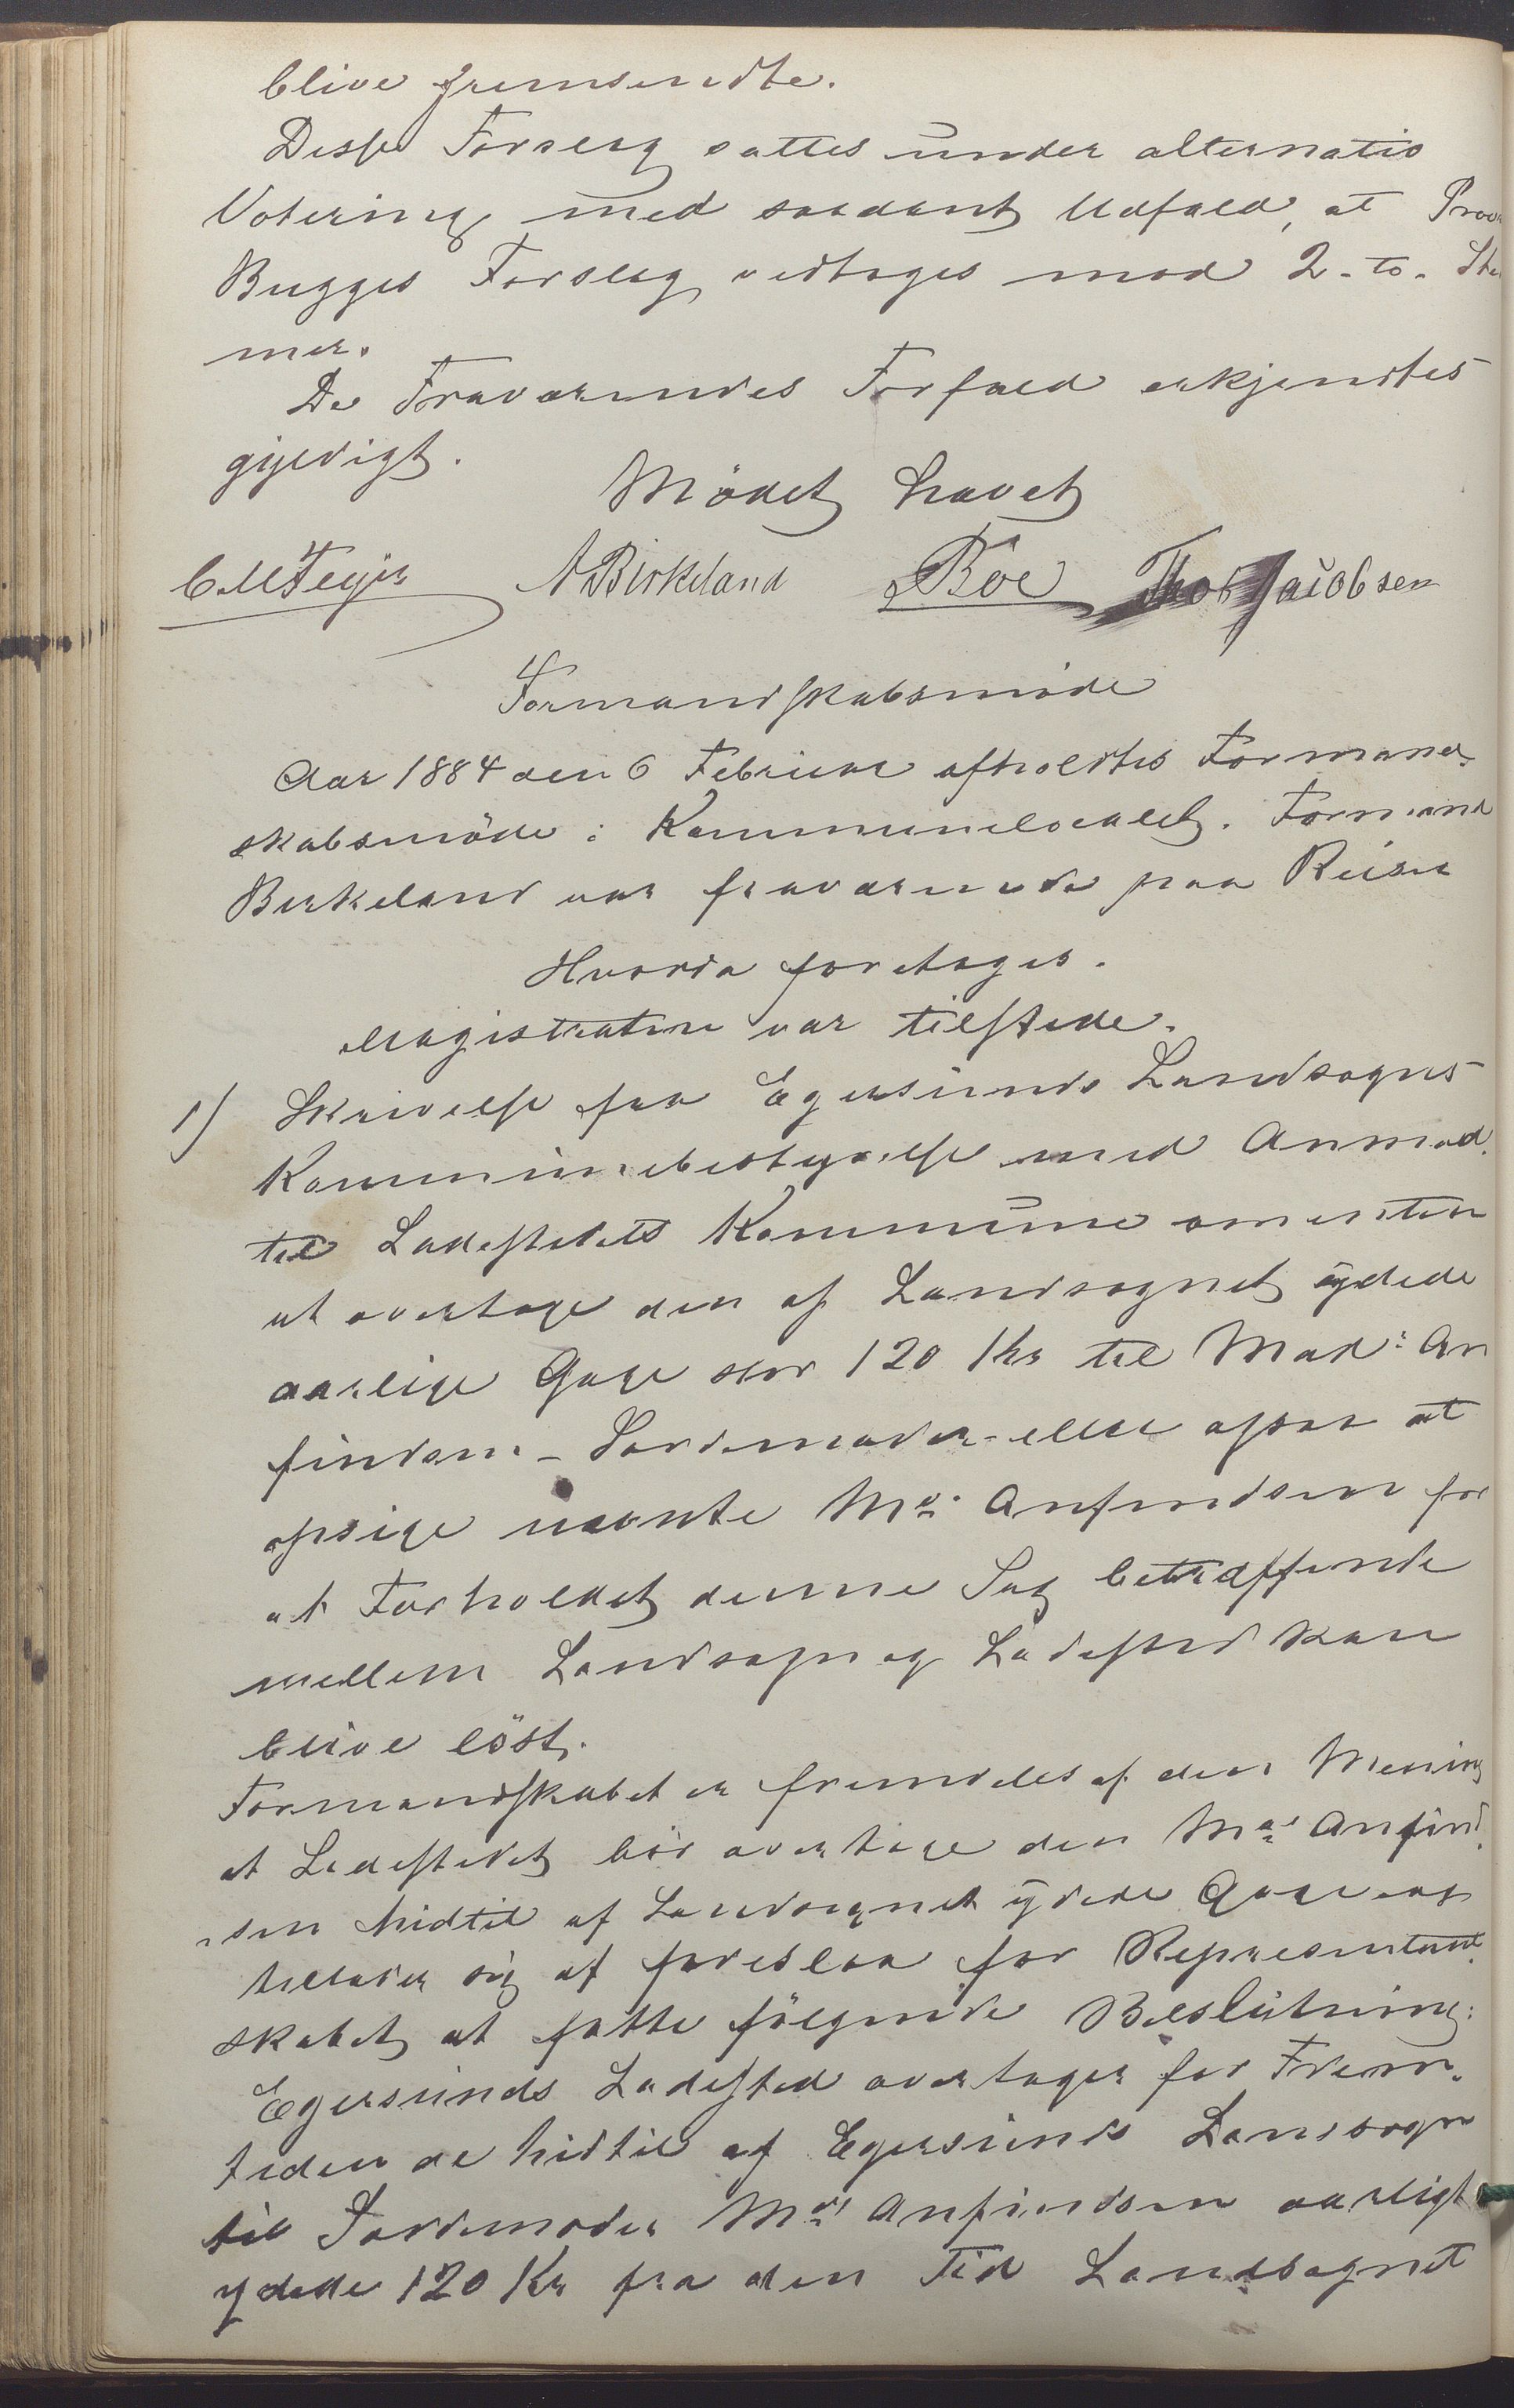 blive fremsendte.
Disse Forslag sattes under alternativ
Votering med saadant Udfald, at
Bugges Forslag vedtoges mod 2 - to -
mer.
De Fraværendes Forfald erkjendtes
gyldigt.
Mödet hævet
A Birkeland Böe Thos Jacobsen
Formandskabsmöde
Aar 1884 den 6 Februar afholdtes Formand-
skabsmöde i Kommunelocalet. Formand
Birkeland var fraværende paa Reise
Hvorda foretoges.
Magistraten var tilstede.
1) Skrivelse fra Egersunds Landsogns
Kommunebestyrelse med Anmod.
til Ladestedets Kommune om enten
at overtage den af Landsognet ydede
aarlige Gage stor 120 Kr til Mad: An
findsen - Jordemoder - eller ogsaa at
opsige nævnte Md: Anfindsen for
at Forholdet denne Sag betræffende
mellem Landsogn og Ladested kan
blive löst.
Formandskabet er fremdeles af den Mening
at Ladestedet bör overtage den Md: Anfind-
sen hidtil af Landsognet ydede Gage og
tillader sig at foreslaa for Repræsentant-
skabet at fatte fölgende Beslutning:
Egersunds Ladested overtager for Frem-
tiden de hidtil af Egersunds Landsogn
til Jordemoder Md: Anfindsen aarligt
ydede 120 Kr fra den Tid Landsognet